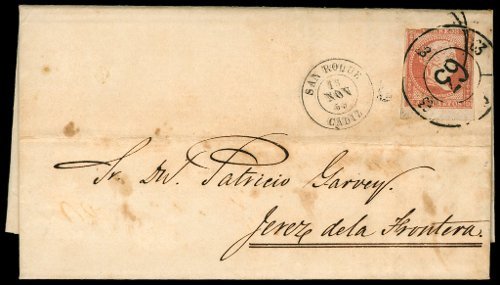 SAN ROQUE
NOV
CADIZ
63
63
Sr. Dn. Patricio Garvey.
Jerez de la Frontera.